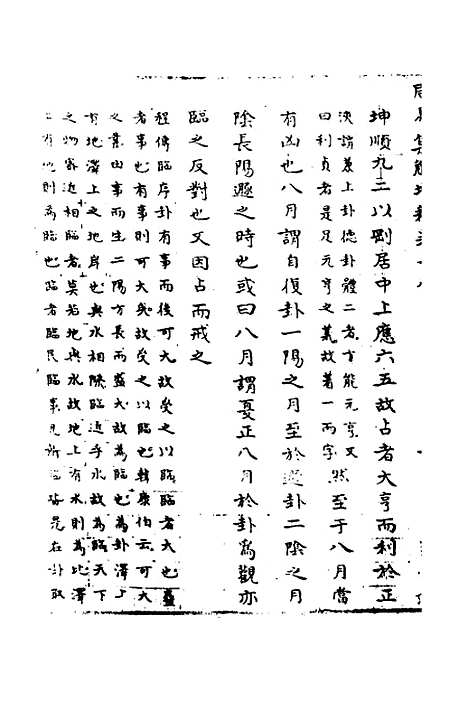 坤順九二以剛居中上應六五故占者大亨而利於正
決謂兼上卦德卦體二者方能元亨又
曰利貞者是足元亨之義故著一而字
然至于八月當
有凶也八月謂自復卦一陽之月至於遯卦二陰之月
陰長陽遯之時也或曰八月謂夏正八月於卦為觀亦
臨之反對也又因占而戒之
程傳臨序卦有事而後可大故受之以臨臨者大也蠱
者事也有事則可大矣故受之以臨也韓康伯云可大
之業由事而生二陽方長而盛大故為臨也為卦澤上
有地澤上之地岸也與水相際臨近乎水故為臨天下
之物密近相臨者莫若地與水故地上有水則為比澤
上有地則為臨也臨者臨民臨事凡所臨皆是在卦取